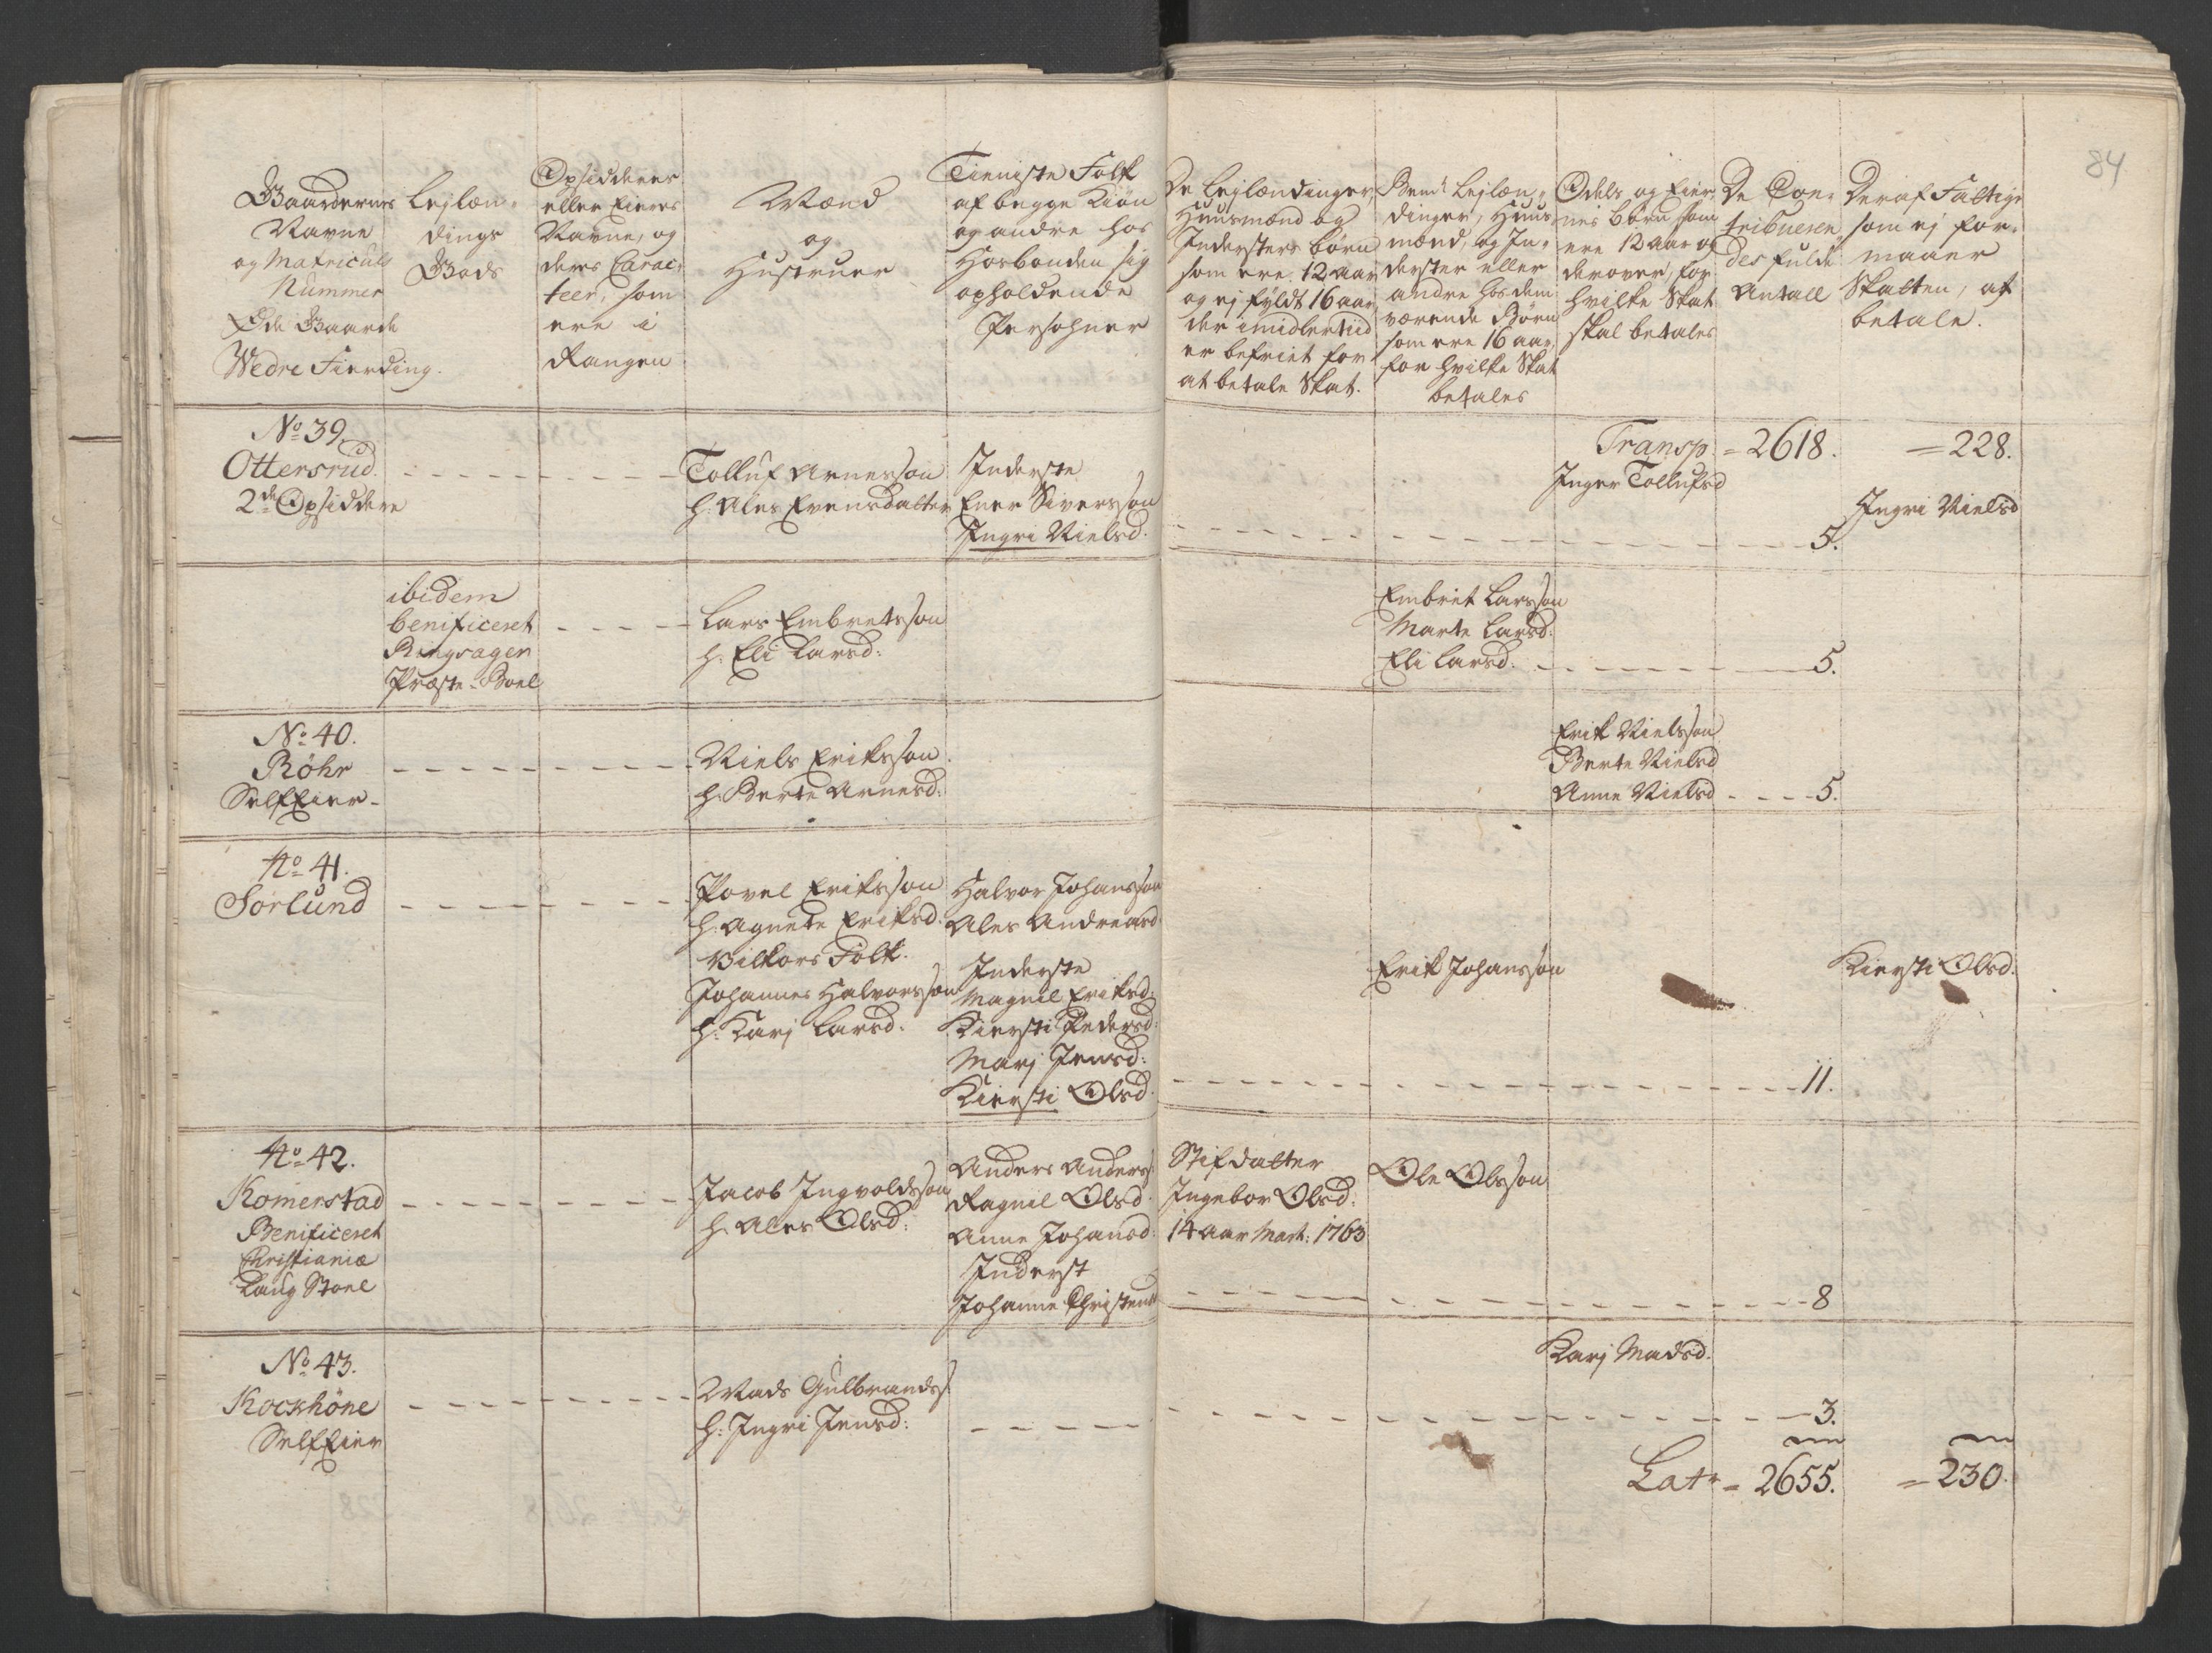 84
Gaardernes
Navne
og Matricul
Nummer
Øde Gaarde
Wedre Fierding.
Lejlæn-
dings
Gods
Opsiddernes
eller Eieres
Navne, og
deres Carac-
teer, som
ere i
Rangen
Mænd
og
Hustruer
Tieniste Folk
af begge Kiøn
og andre hos
Hosbonden sig
opholdende
Persohner
De Lejlændinger,
Huusmænd og
Indersters børn
som ere 12 aar
og ej fyldt 16 aar,
der imidlertiid
er befriet for
at betale Skat.
Bemte Lejlæn-
dinger, Huus-
mænd, og In-
derster eller
andre hos dem
værende Børn
som ere 16 aar,
for hvilke Skat
betales
Odels og Eier-
nes børn som
ere 12 aar og
derover, for
hvilke Skat
skal betales
De Con-
tribueren-
des fulde
Antall
Deraf Fattige
som ej for-
maaer
Skatten, at
betale.
No 39.
Ottersrud
2de Opsiddere
Tolluf Arnesson
h: Ales Evensdatter
Inderste
Ener Siversson
Ingri Nielsd.
Transp. = 2618. = 228.
Inger Tollufsd
Ingri Nielsd
5.
ibidem
benificeret
Ringsager
Præste-Boel
Lars Embretsson
h: Eli Larsd:
Embret Larsson
Marte Larsd:
Eli Larsd.
5.
No 40.
Röhr
SelfEier
Niels Eriksson
h: Berte Arnesd:
Erik Nielsson
Berte Nielsd
Anne Nielsd
5.
No 41.
Sorlund
Povel Eriksson
h: Agnete Eriksd.
Vilkors Folk.
Johannes Halvorsson
h: Karj Larsd.
Halvor Johansson
Ales Andreasd
Inderste
Magnil Eriksd:
Kiersti Pedersd:
Marj Jensd:
Kiersti Olsd.
Erik Johansson
Kiersti Olsd.
11.
No 42.
Komerstad
Benificeret
Christianiæ
Laug Stoel
Jacob Ingvoldsson
h: Ales Olsd:
Anders Anders:
Ragnil Olsd.
Anne Johansd:
Inderst
Johanne Christens
Stifdatter
Ingebor Olsd:
14 aar Mart: 1763
Ole Olsson
8
No 43.
Kockhöne
SelfEier
Mads Gulbrands:
h: Ingri Jensd:
Karj Madsd.
3.
Latr = 2655. = 230.